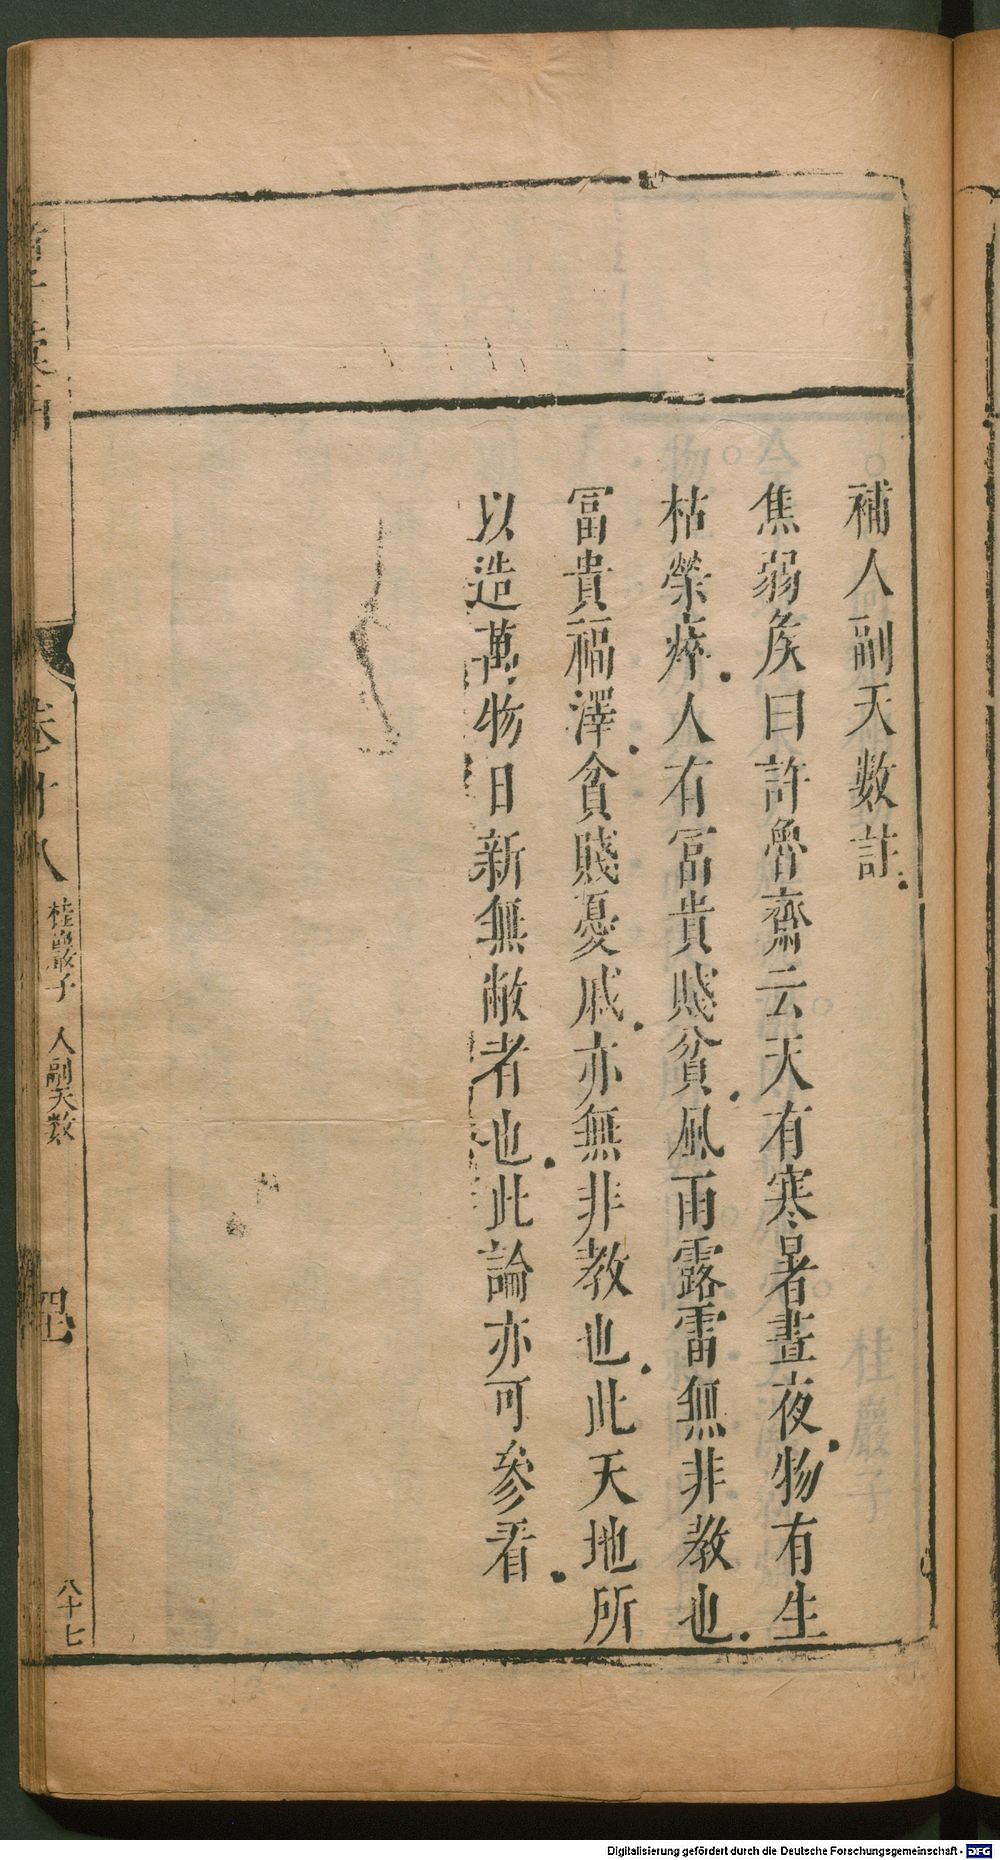 補人副天數註
焦弱侯曰許魯齋云天有寒暑晝夜物有生
枯榮瘁人有富貴賤貧風雨露雷無非教也
富貴福澤貧賤憂戚亦無非教也此天地所
以造萬物日新無敝者也此論亦可參看
卷十八
桂巖子 人副天數
八十七
Digitalisierung gefördert durch die Deutsche Forschungsgemeinschaft - DFG